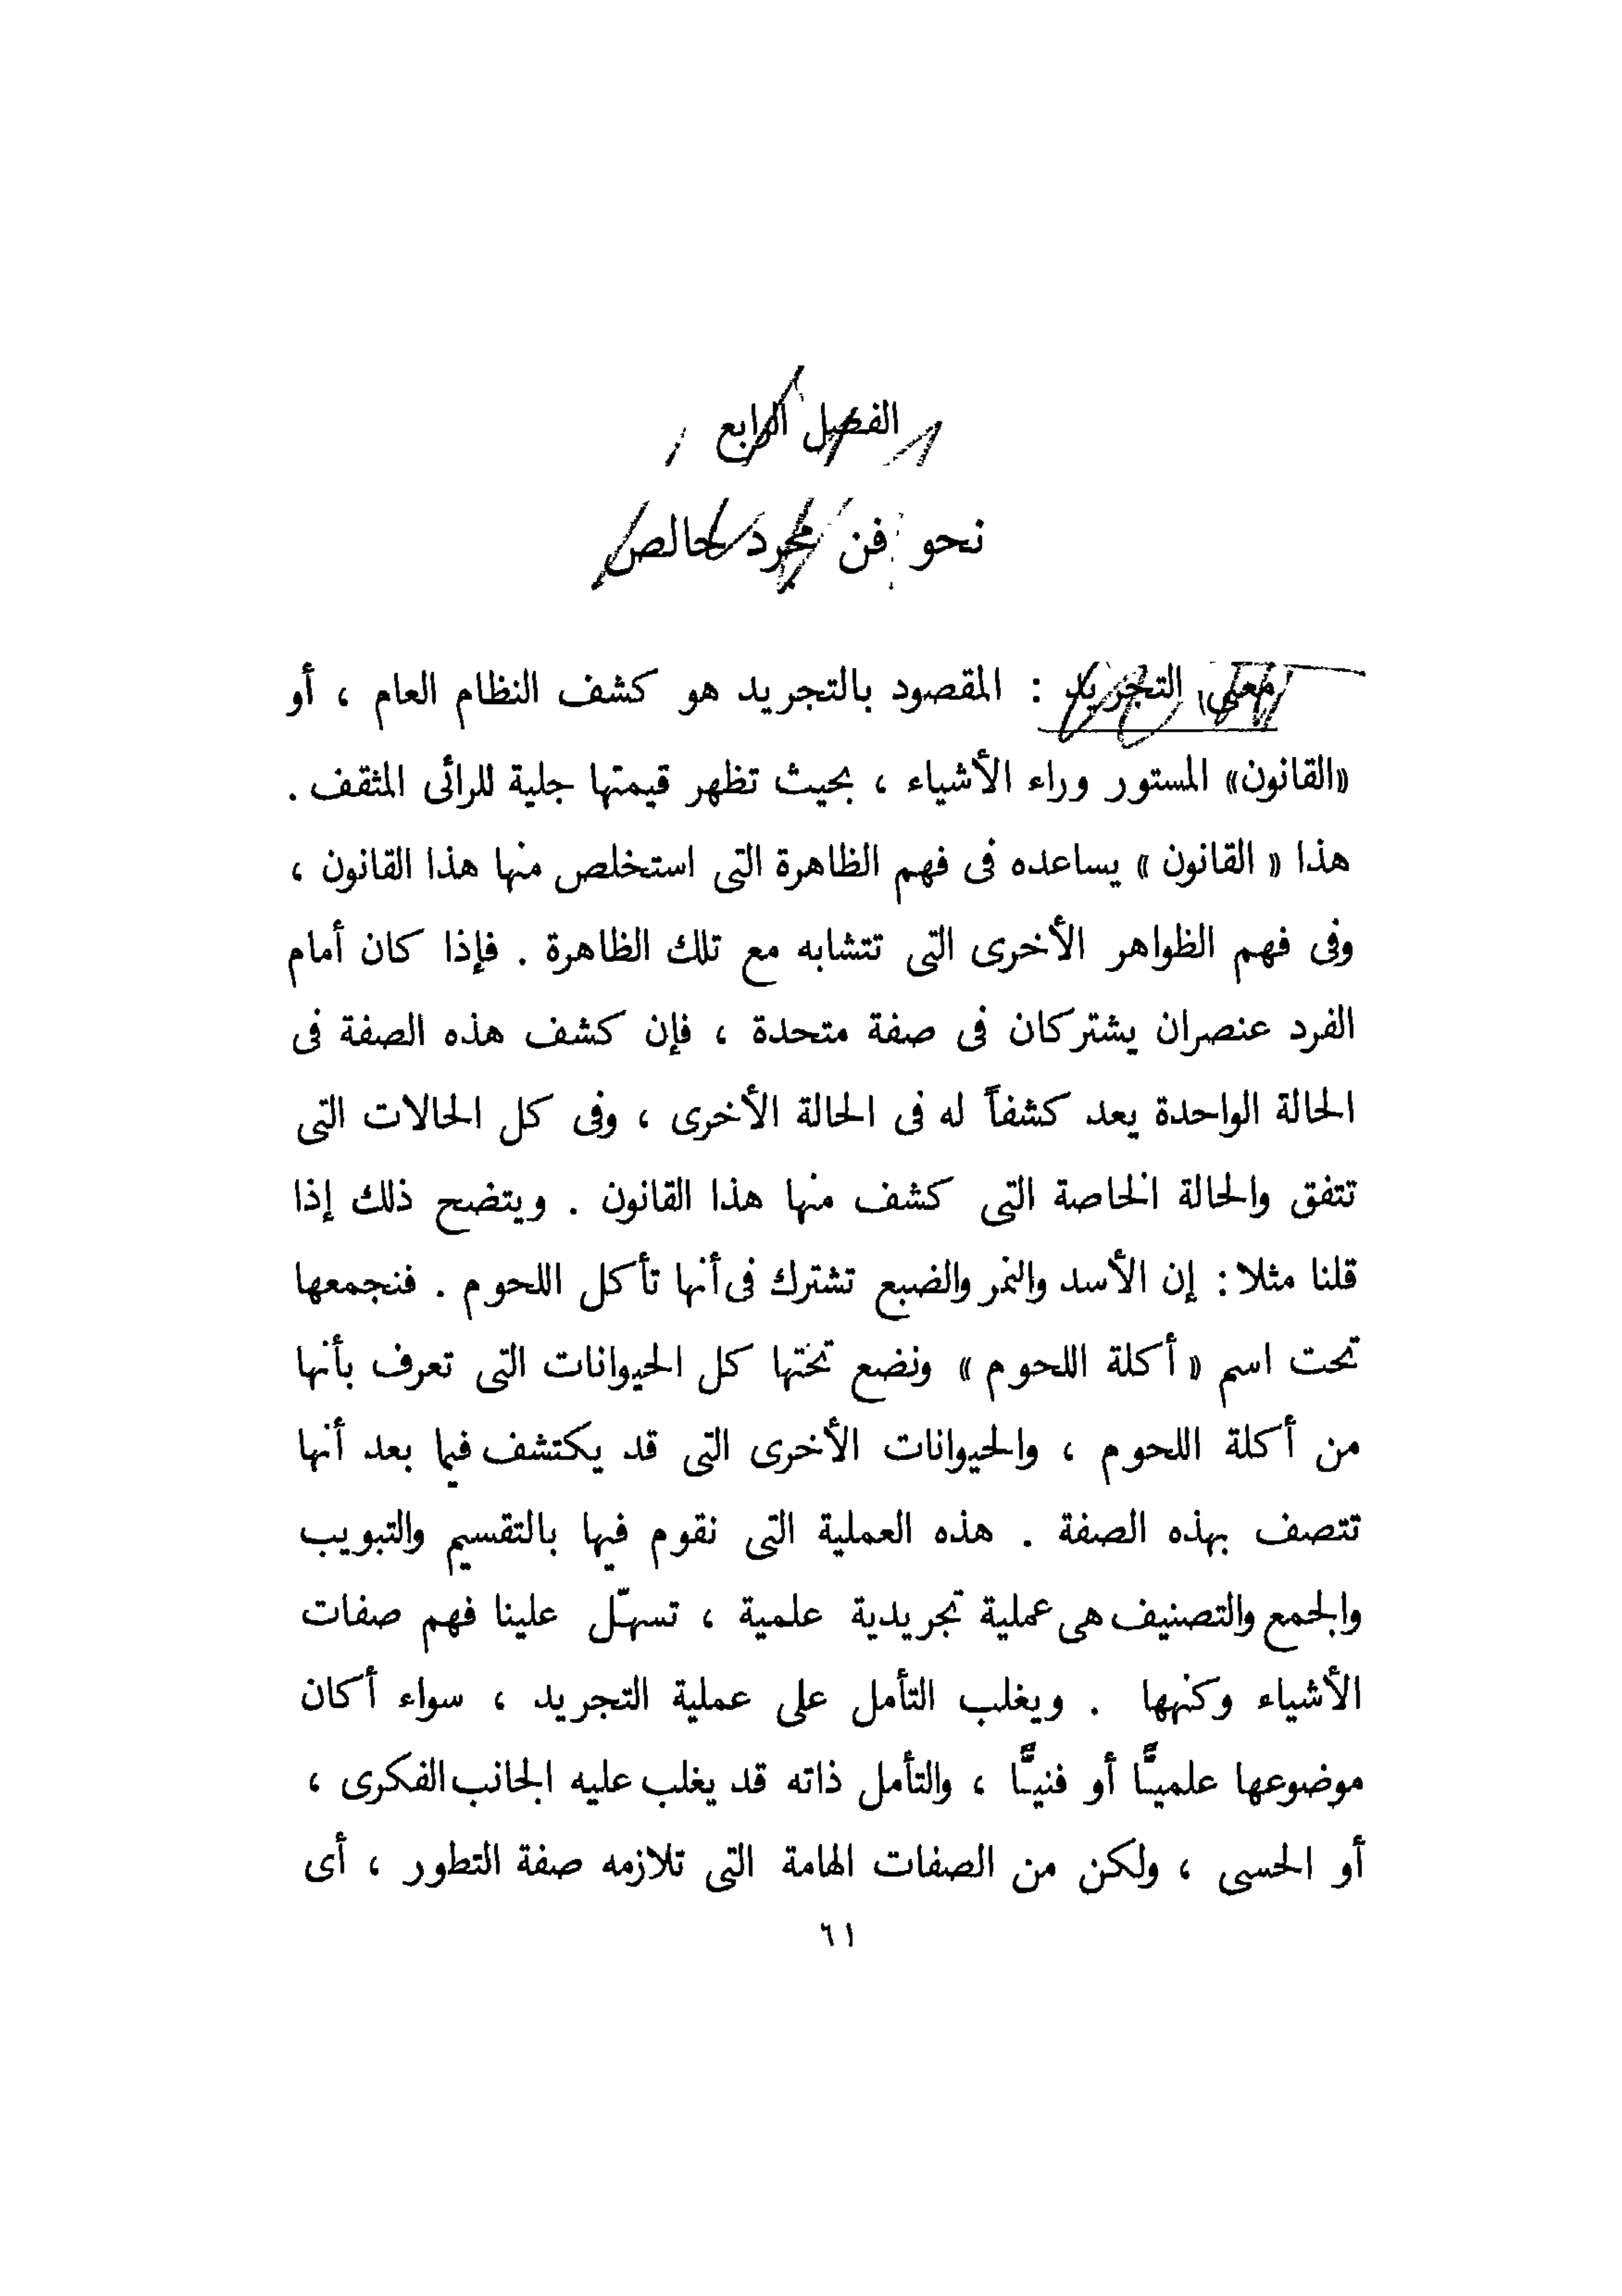 الفصل الرابع
نحو فن مجرد خالص
معنى التجريد : المقصود بالتجريد هو كشف النظام العام ، أو
«القانون» المستور وراء الأشياء ، بحيث تظهر قيمتها جلية للرائى المثقف .
هذا « القانون » يساعده فى فهم الظاهرة التى استخلص منها هذا القانون ،
وفى فهم الظواهر الأخرى التى تتشابه مع تلك الظاهرة . فإذا كان أمام
الفرد عنصران يشتركان فى صفة متحدة ، فإن كشف هذه الصفة فى
الحالة الواحدة يعد كشفاً له فى الحالة الأخرى ، وفى كل الحالات التى
تتفق والحالة الخاصة التى كشف منها هذا القانون . ويتضح ذلك إذا
قلنا مثلا : إن الأسد والنمر والضبع تشترك فى أنها تأكل اللحوم . فنجمعها
تحت اسم « أكلة اللحوم » ونضع تحتها كل الحيوانات التى تعرف بأنها
من أكلة اللحوم ، والحيوانات الأخرى التى قد يكتشف فيما بعد أنها
تتصف بهذه الصفة . هذه العملية التى نقوم فيها بالتقسيم والتبويب
والجمع والتصنيف هى عملية تجريدية علمية ، تسهّل علينا فهم صفات
الأشياء وكنهها . ويغلب التأمل على عملية التجريد ، سواء أكان
موضوعها علميًّا أو فنيًّا ، والتأمل ذاته قد يغلب عليه الجانب الفكرى ،
أو الحسى ، ولكن من الصفات الهامة التى تلازمه صفة التطور ، أى
٦١